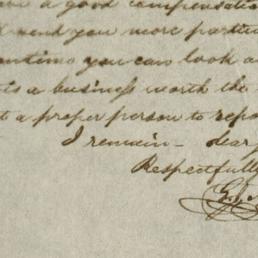 a good compensation
send you more partic
you can look a
a business worth the
t a proper person to repo
I remain - dear
Respectfully